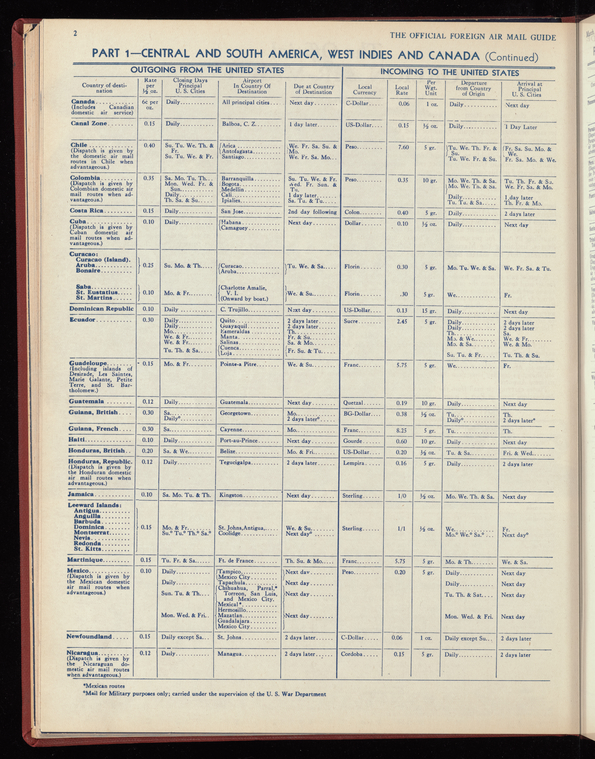 2 THE OFFICIAL FOREIGN AIR MAIL GUIDE
PART 1—CENTRAL AND SOUTH AMERICA, WEST INDIES AND CANADA (Continued)
OUTGOING FROM THE UNITED STATES INCOMING TO THE UNITED STATES
Country of desti- nation Rate per ½ oz. Closing Days Principal U. S. Cities Airport In Country Of Destination Due at Country of Destination Local Currency Local Rate Per Wgt. Unit Departure from Country of Origin Arrival at Principal U. S. Cities
Canada 6c per oz. Daily All principal cities Next day C-Dollar 0.06 1 oz. Daily Next day
(Includes Canadian
domestic air service)
Canal Zone 0.15 Daily Balboa, C. Z. 1 day later US-Dollar 0.15 ½ oz. Daily 1 Day Later
Chile 0.40 Su. Tu. We. Th. & Fr. Arica We. Fr. Sa. Su. & Mo. Peso 7.60 5 gr. Tu. We. Th. Fr. & Su. Fr. Sa. Su. Mo. & We.
(Dispatch is given by Antofagasta
the domestic air mail Su. Tu. We. & Fr. Santiago We. Fr. Sa. Mo. Tu. We. Fr. & Su. Fr. Sa. Mo. & We.
routes in Chile when
advantageous.)
Colombia 0.35 Sa. Mo. Tu. Th. Barranquilla Su. Tu. We. & Fr. Peso 0.35 10 gr. Mo. We. Th. & Sa. Tu. Th. Fr. & Su.
(Dispatch is given by Mon. Wed. Fr. & Sun. Bogota Wed. Fr. Sun. & Tu. Mo. We. Th. & Sa. We. Fr. Su. & Mo.
Colombian domestic air Medellin
mail routes when ad- Daily Cali 1 day later Daily 1 day later
vantageous.) Th. Sa. & Su. Ipiales Sa. Tu. & Tu. Tu. Tu. & Sa. Th. Fr. & Mo.
Costa Rica 0.15 Daily San Jose 2nd day following Colon 0.40 5 gr. Daily 2 days later
Cuba 0.10 Daily Habana Next day Dollar 0.10 ½ oz. Daily Next day
(Dispatch is given by Camaguey
Cuban domestic air
mail routes when ad-
vantageous.)
Curacao:
Curacao (Island)
Aruba 0.25 Su. Mo. & Th. Curacao Tu. We. & Sa. Florin 0.30 5 gr. Mo. Tu. We. & Sa. We. Fr. Sa. & Tu.
Bonaire Aruba
Saba Charlotte Amalie,
St. Eustatius 0.10 Mo. & Fr. V. I. We. & Su. Florin .30 5 gr. We. Fr.
St. Martins (Onward by boat.)
Dominican Republic 0.10 Daily C. Trujillo Next day US-Dollar 0.13 15 gr. Daily Next day
Ecuador 0.30 Daily Quito 2 days later Sucre 2.45 5 gr. Daily 2 days later
Daily Guayaquil 2 days later Daily 2 days later
Mo. Esmeraldas Th. Th. Sa.
We. & Fr. Manta Fr. & Su. Mo. & We. We. & Fr.
We. & Fr. Salinas Sa. & Mo. Mo. & Sa. We. & Mo.
Tu. Th. & Sa. Cuenca Fr. Su. & Tu. Su. Tu. & Fr. Tu. Th. & Sa.
Loja
Guadeloupe 0.15 Mo. & Fr. Pointe-a Pitre We. & Su. Franc 5.75 5 gr. We. Fr.
(Including islands of
Desirade, Les Saintes,
Marie Galante, Petite
Terre, and St. Bar-
tholomew.)
Guatemala 0.12 Daily Guatemala Next day Quetzal 0.19 10 gr. Daily Next day
Guiana, British 0.30 Sa. Georgetown Mo. BG-Dollar 0.38 ½ oz. Tu. Th.
Daily* 2 days later* Daily* 2 days later*
Guiana, French 0.30 Sa. Cayenne Mo. Franc 8.25 5 gr. Tu. Th.
Haiti 0.10 Daily Port-au-Prince Next day Gourde 0.60 10 gr. Daily Next day
Honduras, British 0.20 Sa. & We. Belize Mo. & Fri. US-Dollar 0.20 ½ oz. Tu. & Sa. Fri. & Wed.
Honduras, Republic 0.12 Daily Tegucigalpa 2 days later Lempira 0.16 5 gr. Daily 2 days later
(Dispatch is given by
the Honduran domestic
air mail routes when
advantageous.)
Jamaica 0.10 Sa. Mo. Tu. & Th. Kingston Next day Sterling 1/0 ½ oz. Mo. We. Th. & Sa. Next day
Leeward Islands:
Antigua
Anguilla
Barbuda
Dominica 0.15 Mo. & Fr. St. Johns, Antigua We. & Su. Sterling 1/1 ½ oz. We. Fr.
Montserrat Su.* Tu.* Th.* Sa.* Coolidge Next day* Mo.* We.* Sa.* Next day*
Nevis
Redonda
St. Kitts
Martinique 0.15 Tu. Fr. & Sa. Ft. de France Th. Su. & Mo. Franc 5.75 5 gr. Mo. & Th. We. & Sa.
Mexico 0.10 Daily Tampico Next day Peso 0.20 5 gr. Daily Next day
(Dispatch is given by Mexico City
the Mexican domestic Daily Tapachula Next day Daily Next day
air mail routes when Sun. Tu. & Th. Chihuahua, Parral,* Next day Tu. Th. & Sat. Next day
advantageous.) Torreon, San Luis,
and Mexico City,
Mexical*
Hermosillo
Mon. Wed. & Fri. Mazatlan Next day Mon. Wed. & Fri. Next day
Guadalajara
Mexico City
Newfoundland 0.15 Daily except Sa. St. Johns 2 days later C-Dollar 0.06 1 oz. Daily except Su. 2 days later
Nicaragua 0.12 Daily Managua 2 days later Cordoba 0.15 5 gr. Daily 2 days later
(Dispatch is given by
the Nicaraguan do-
mestic air mail routes
when advantageous.)
*Mexican routes
*Mail for Military purposes only; carried under the supervision of the U. S. War Department